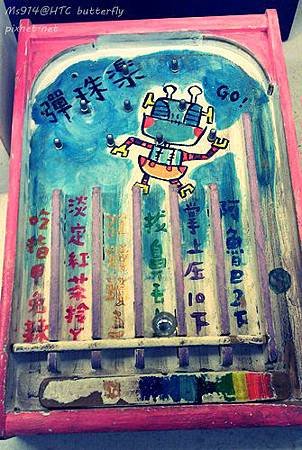 Ms914@HTC butterfly
pixnet.net
彈珠楽
GO!
吃指甲
淡定紅茶
拔鼻毛
掌上压10下
阿魯巴2下